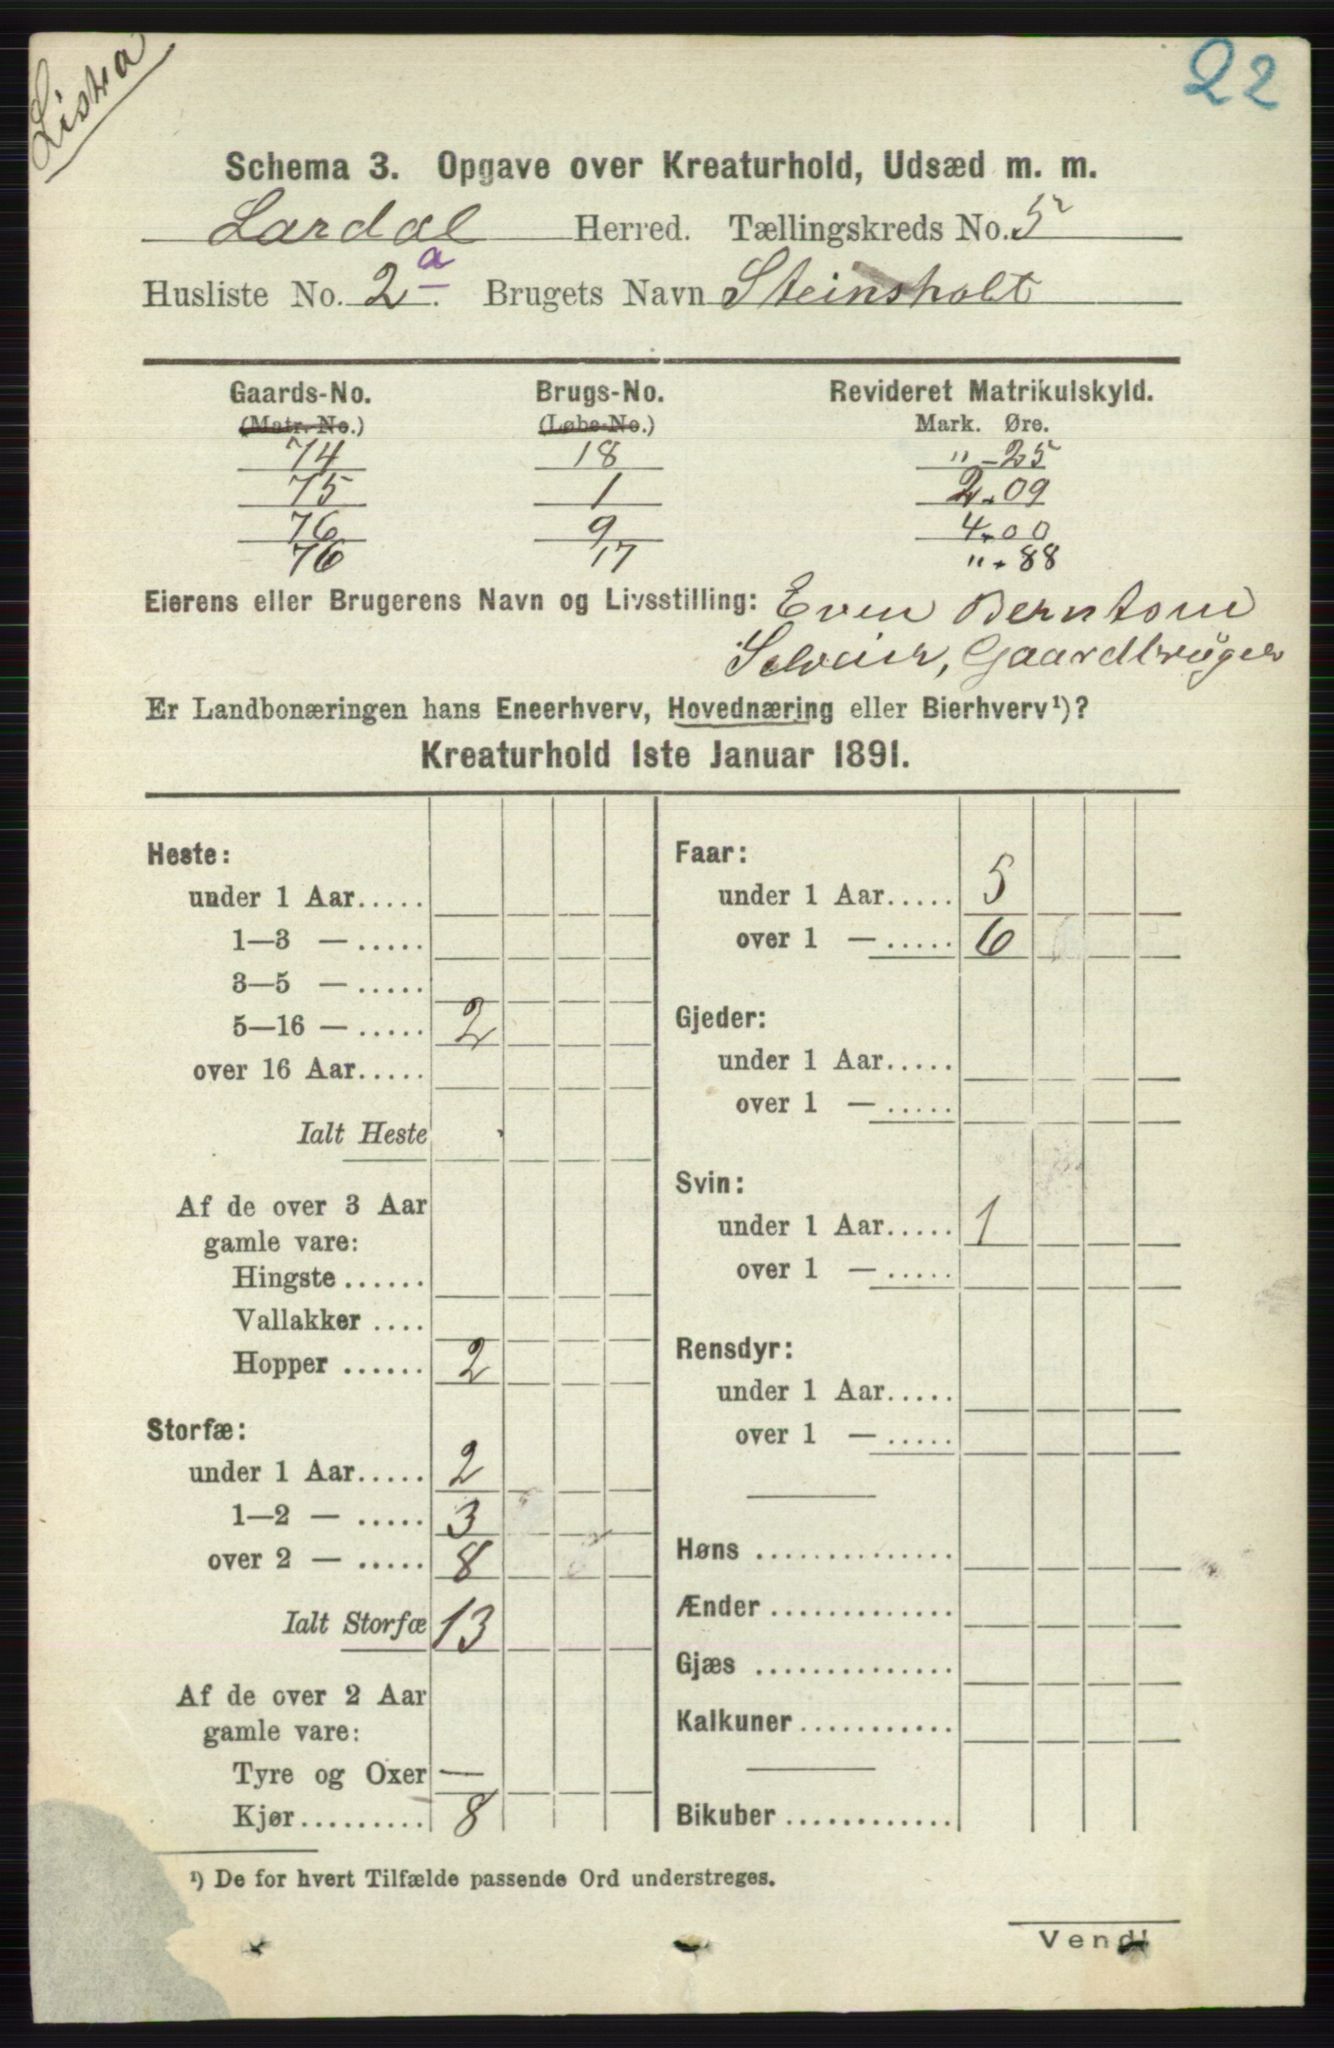 Listra
22
Schema 3. Opgave over Kreaturhold, Udsæd m. m.
Lardal Herred. Tællingskreds No. 5
Husliste No. 2a. Brugets Navn Steinsholt
Gaards-No. Brugs-No. Revideret Matrikulskyld.
(Matr.-No.) (Løbe-No.) Mark. Øre.
74 18 " - 25
75 1 2.09
76 9 4.00
76 17 " . 88
Eierens eller Brugerens Navn og Livsstilling: Even
Gaardbruger
Er Landbonæringen hans Eneerhverv, Hovednæring eller Bierhverv¹)?
Kreaturhold 1ste Januar 1891.
Heste:
under 1 Aar.....
1—3 — .....
3—5 — .....
5—16 — ..... 2
over 16 Aar.....
Ialt Heste
Af de over 3 Aar
gamle vare:
Hingste ......
Vallakker ....
Hopper ...... 2
Storfæ:
under 1 Aar..... 2
1—2 — ..... 3
over 2 — ..... 8
Ialt Storfæ 13
Af de over 2 Aar
gamle vare:
Tyre og Oxer —
Kjør......... 8
Faar:
under 1 Aar..... 5
over 1 — ..... 6
Gjeder:
under 1 Aar.....
over 1 — .....
Svin:
under 1 Aar..... 1
over 1 — .....
Rensdyr:
under 1 Aar.....
over 1 — .....
Høns ..............
Ænder .............
Gjæs ..............
Kalkuner...........
Bikuber ............
¹) De for hvert Tilfælde passende Ord understreges.
Vend!